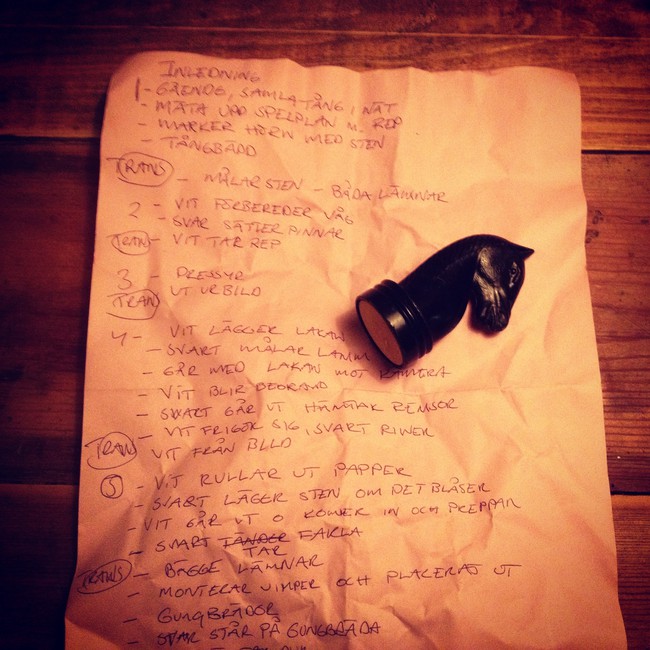 INLEDNING
1 - GÅENDE, SAMLA TÅNG I NÄT
- MÄTA UPP SPELPLAN M. REP
- MARKER HÖRN MED STEN
- TÅNGBÄDD
TRANS - MÅLAR STEN - BÅDA LÄMNAR
2 - VIT FÖRBEREDER VÅG
- SVAR SÄTTER PINNAR
TRAN - VIT TAR REP
3 - DRESSYR
TRAN UT UR BILD
4 - VIT LÄGGER LAKAN
- SVART MÅLAR LAMM
- GÅR MED LAKAN MOT KAMERA
- VIT BLIR
- SVART GÅR UT HÄMTAR REMSOR
- VIT FRIGÖR SIG, SVART RIVER
TRAN VIT FRÅN BILD
5 - VIT RULLAR UT PAPPER
- SVART LÄGGER STEN OM DET BLÅSER
- VIT GÅR UT O KOMMER IN OCH PREPPAR
- SVART TÄNDER FAKLA
TAR
TRANS - BÄGGE LÄMNAR
- MONTERAR VIMPER OCH PLACERAS UT
- GUNGBRÄDOR
- SVAR STÅR PÅ GUNGBRÄDA